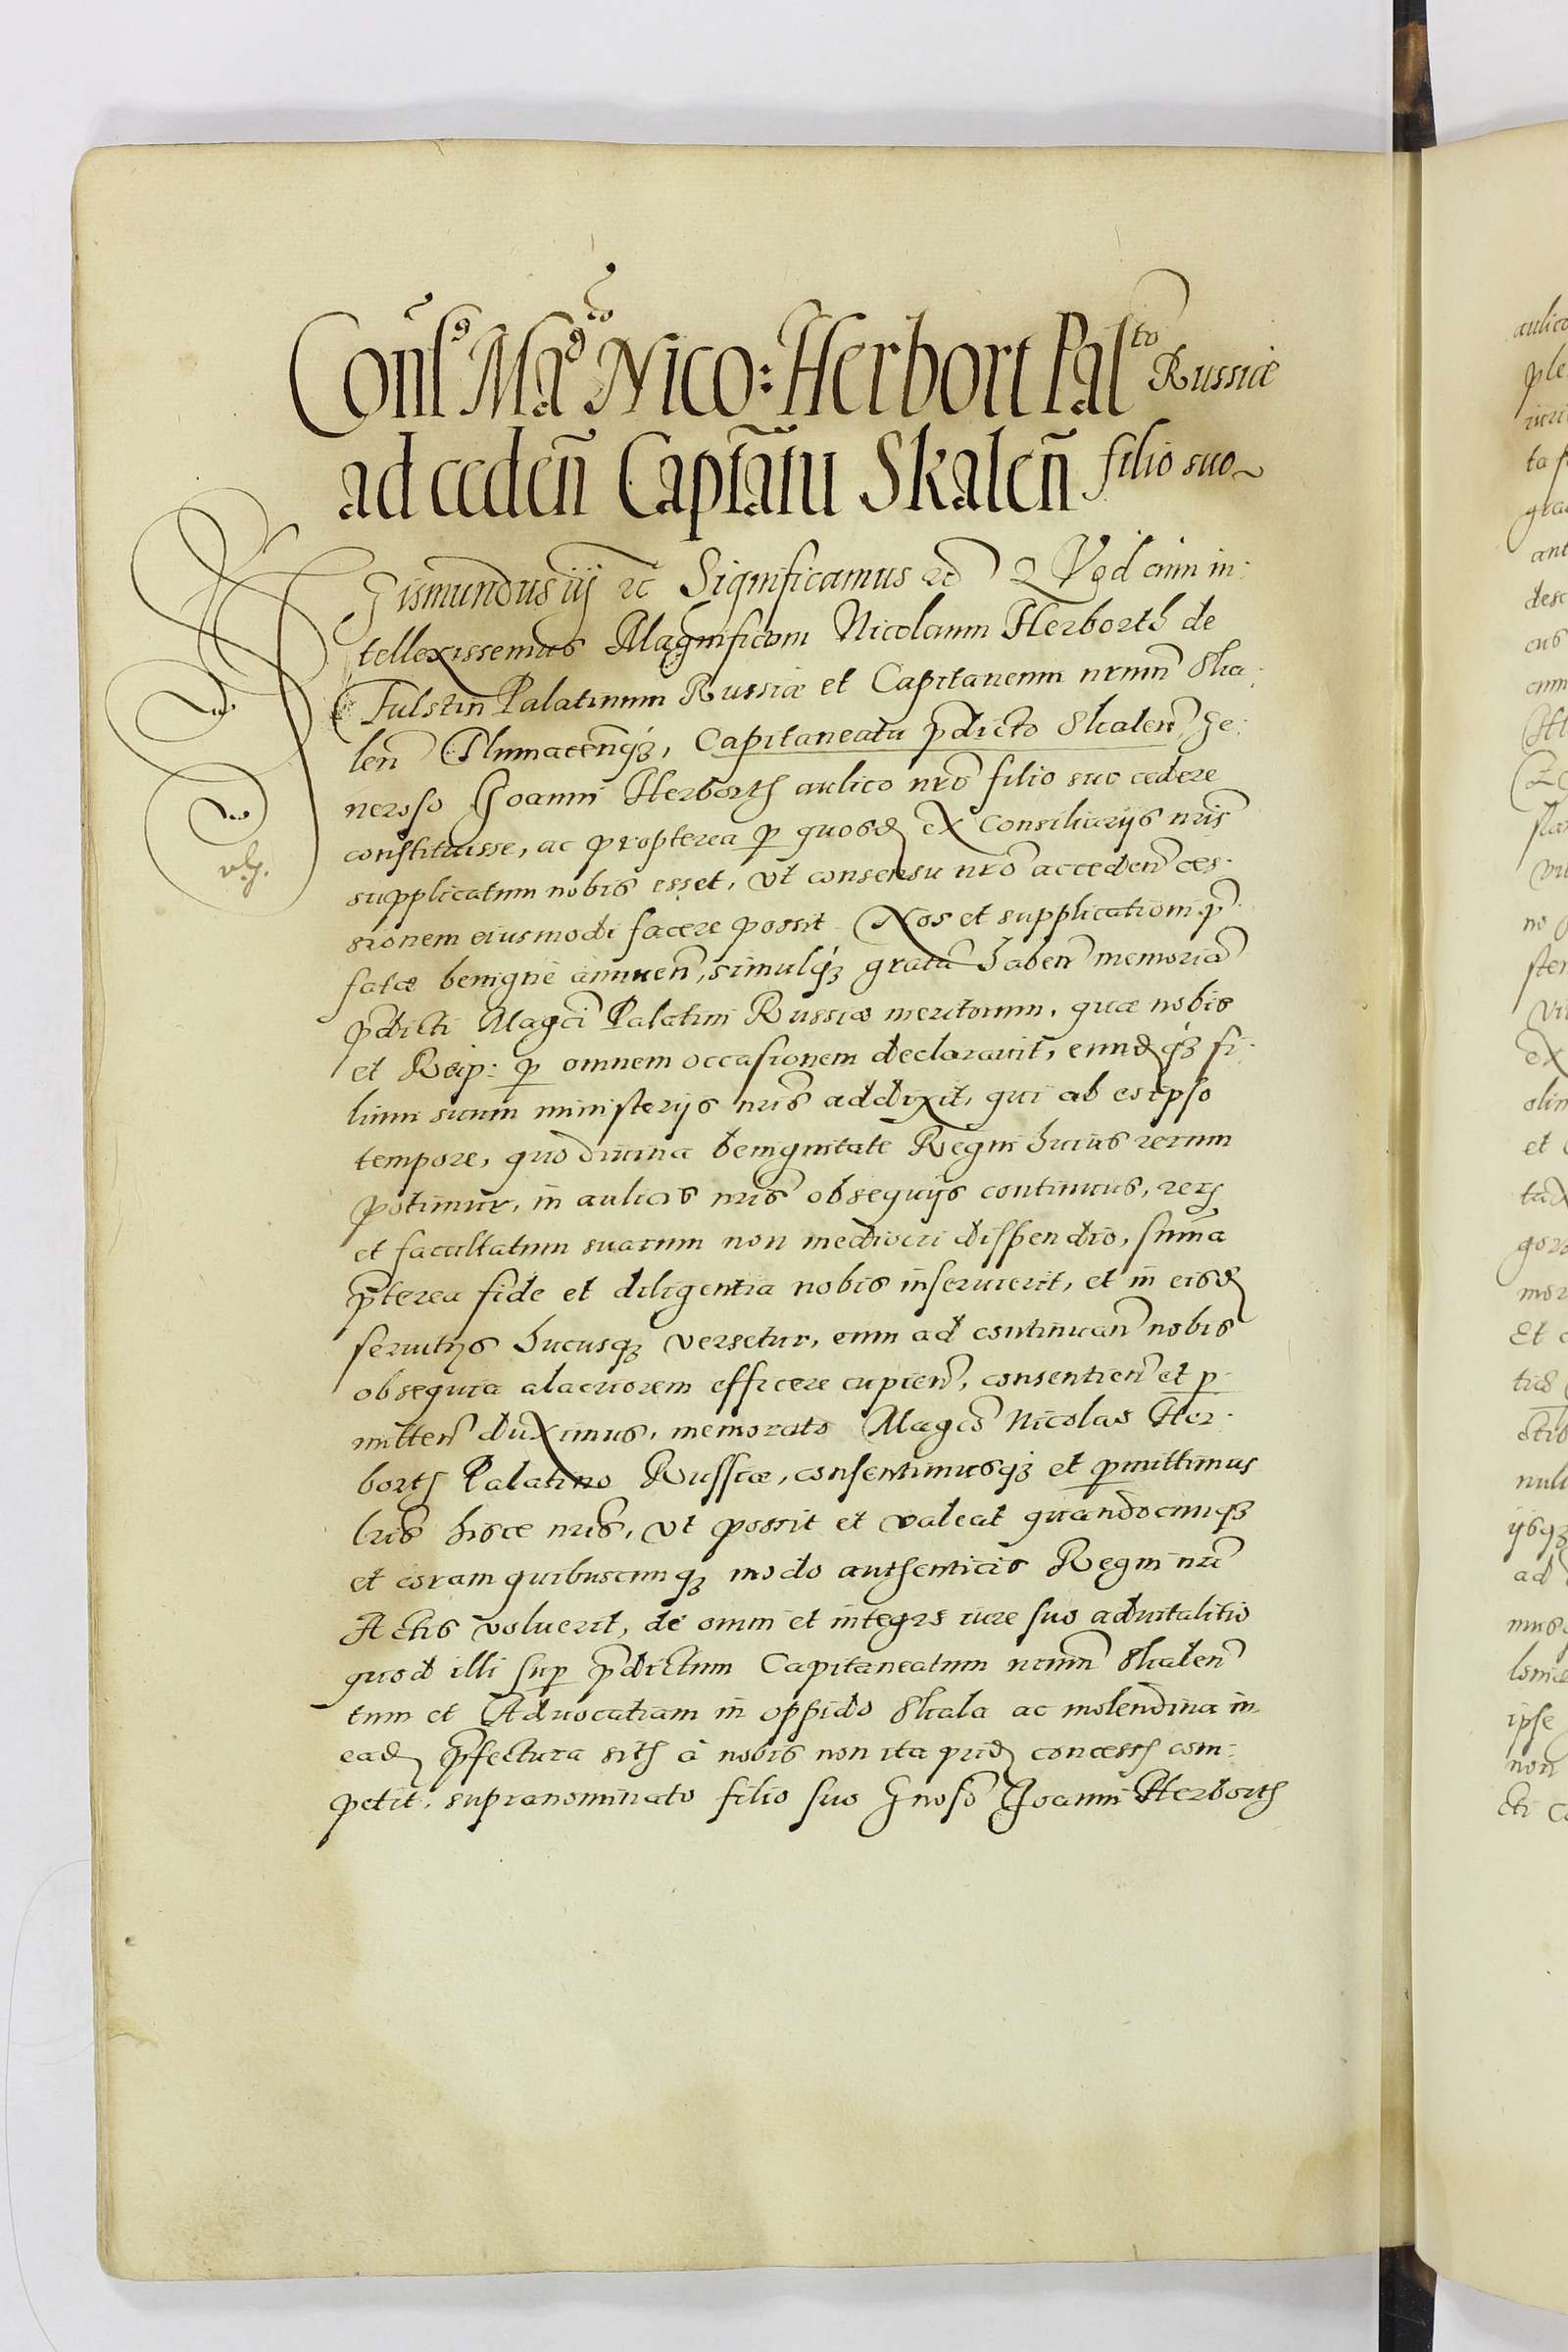 Cons̃9 Mag̃co Nico: Herbort Palto Russiæ
ad ceden̄ Capt̃atu Skalen̄ filio suo
Sigismundus iij ec̃ Significamus ec̃ Quod cum in:
tellexissemus Magnificum Nicolaum Herborth de
Fulstin Palatinum Russiæ et Capitaneum nrum̃ Ska:
len̄ Tlumacen̄q3, Capitaneatu p̃dicto Skalen̄, Ge:
neroso Joanni Herborth aulico nrõ filio suo cedere
constituisse, ac propterea ꝑ quosd ex Consiliarijs nris̃
supplicatum nobis esset, ut consensu nrõ acceden̄ ces:
sionem eiusmodi facere possit. Nos et supplicationi p̃
fatæ benigne annuen̄, simulq3 gratã haben̄ memoriã
p̃dicti Magc̃i Palatini Russiæ meritorum, quæ nobis
et Reip: ꝑ omnem occasionem declaravit, eundq3 fi:
lium suum ministerijs nris̃ addixit, qui ab eo ipso
tempore, quo divina benignitate Regni huius rerum
potimur, in aulicis nris̃ obsequijs continuus, rerꝝ
et facultatum suarum non mediocri dispendio, sum̃a
p̃terea fide et diligentia nobis inservierit, et in eisd
servitijs hucusq3 versetur, eum ad continuan̄ nobis
obsequia alacriorem efficere cupien̄, consentien̄ et ꝑ:
mitten̄ duximus, memorato Magc̃o Nicolao Her:
borth Palatino Russiæ, consentimusq3 et ꝑmittimus
lris̃ hisce nris̃, ut possit et valeat quandocumq3
et coram quibuscumq3 modo authenticis Regni nrĩ
Actis voluerit, de omni et integro iure suo advitalitio
quod illi suꝑ p̃dictum Capitaneatum nrum̃ Skalen̄
tum et Advocatiam in oppido Skala ac molendina in
ead p̃fectura sitꝭ à nobis non ita prid concessꝭ com:
petit, supranominato filio suo Gnoso̅ Joanni Herborth